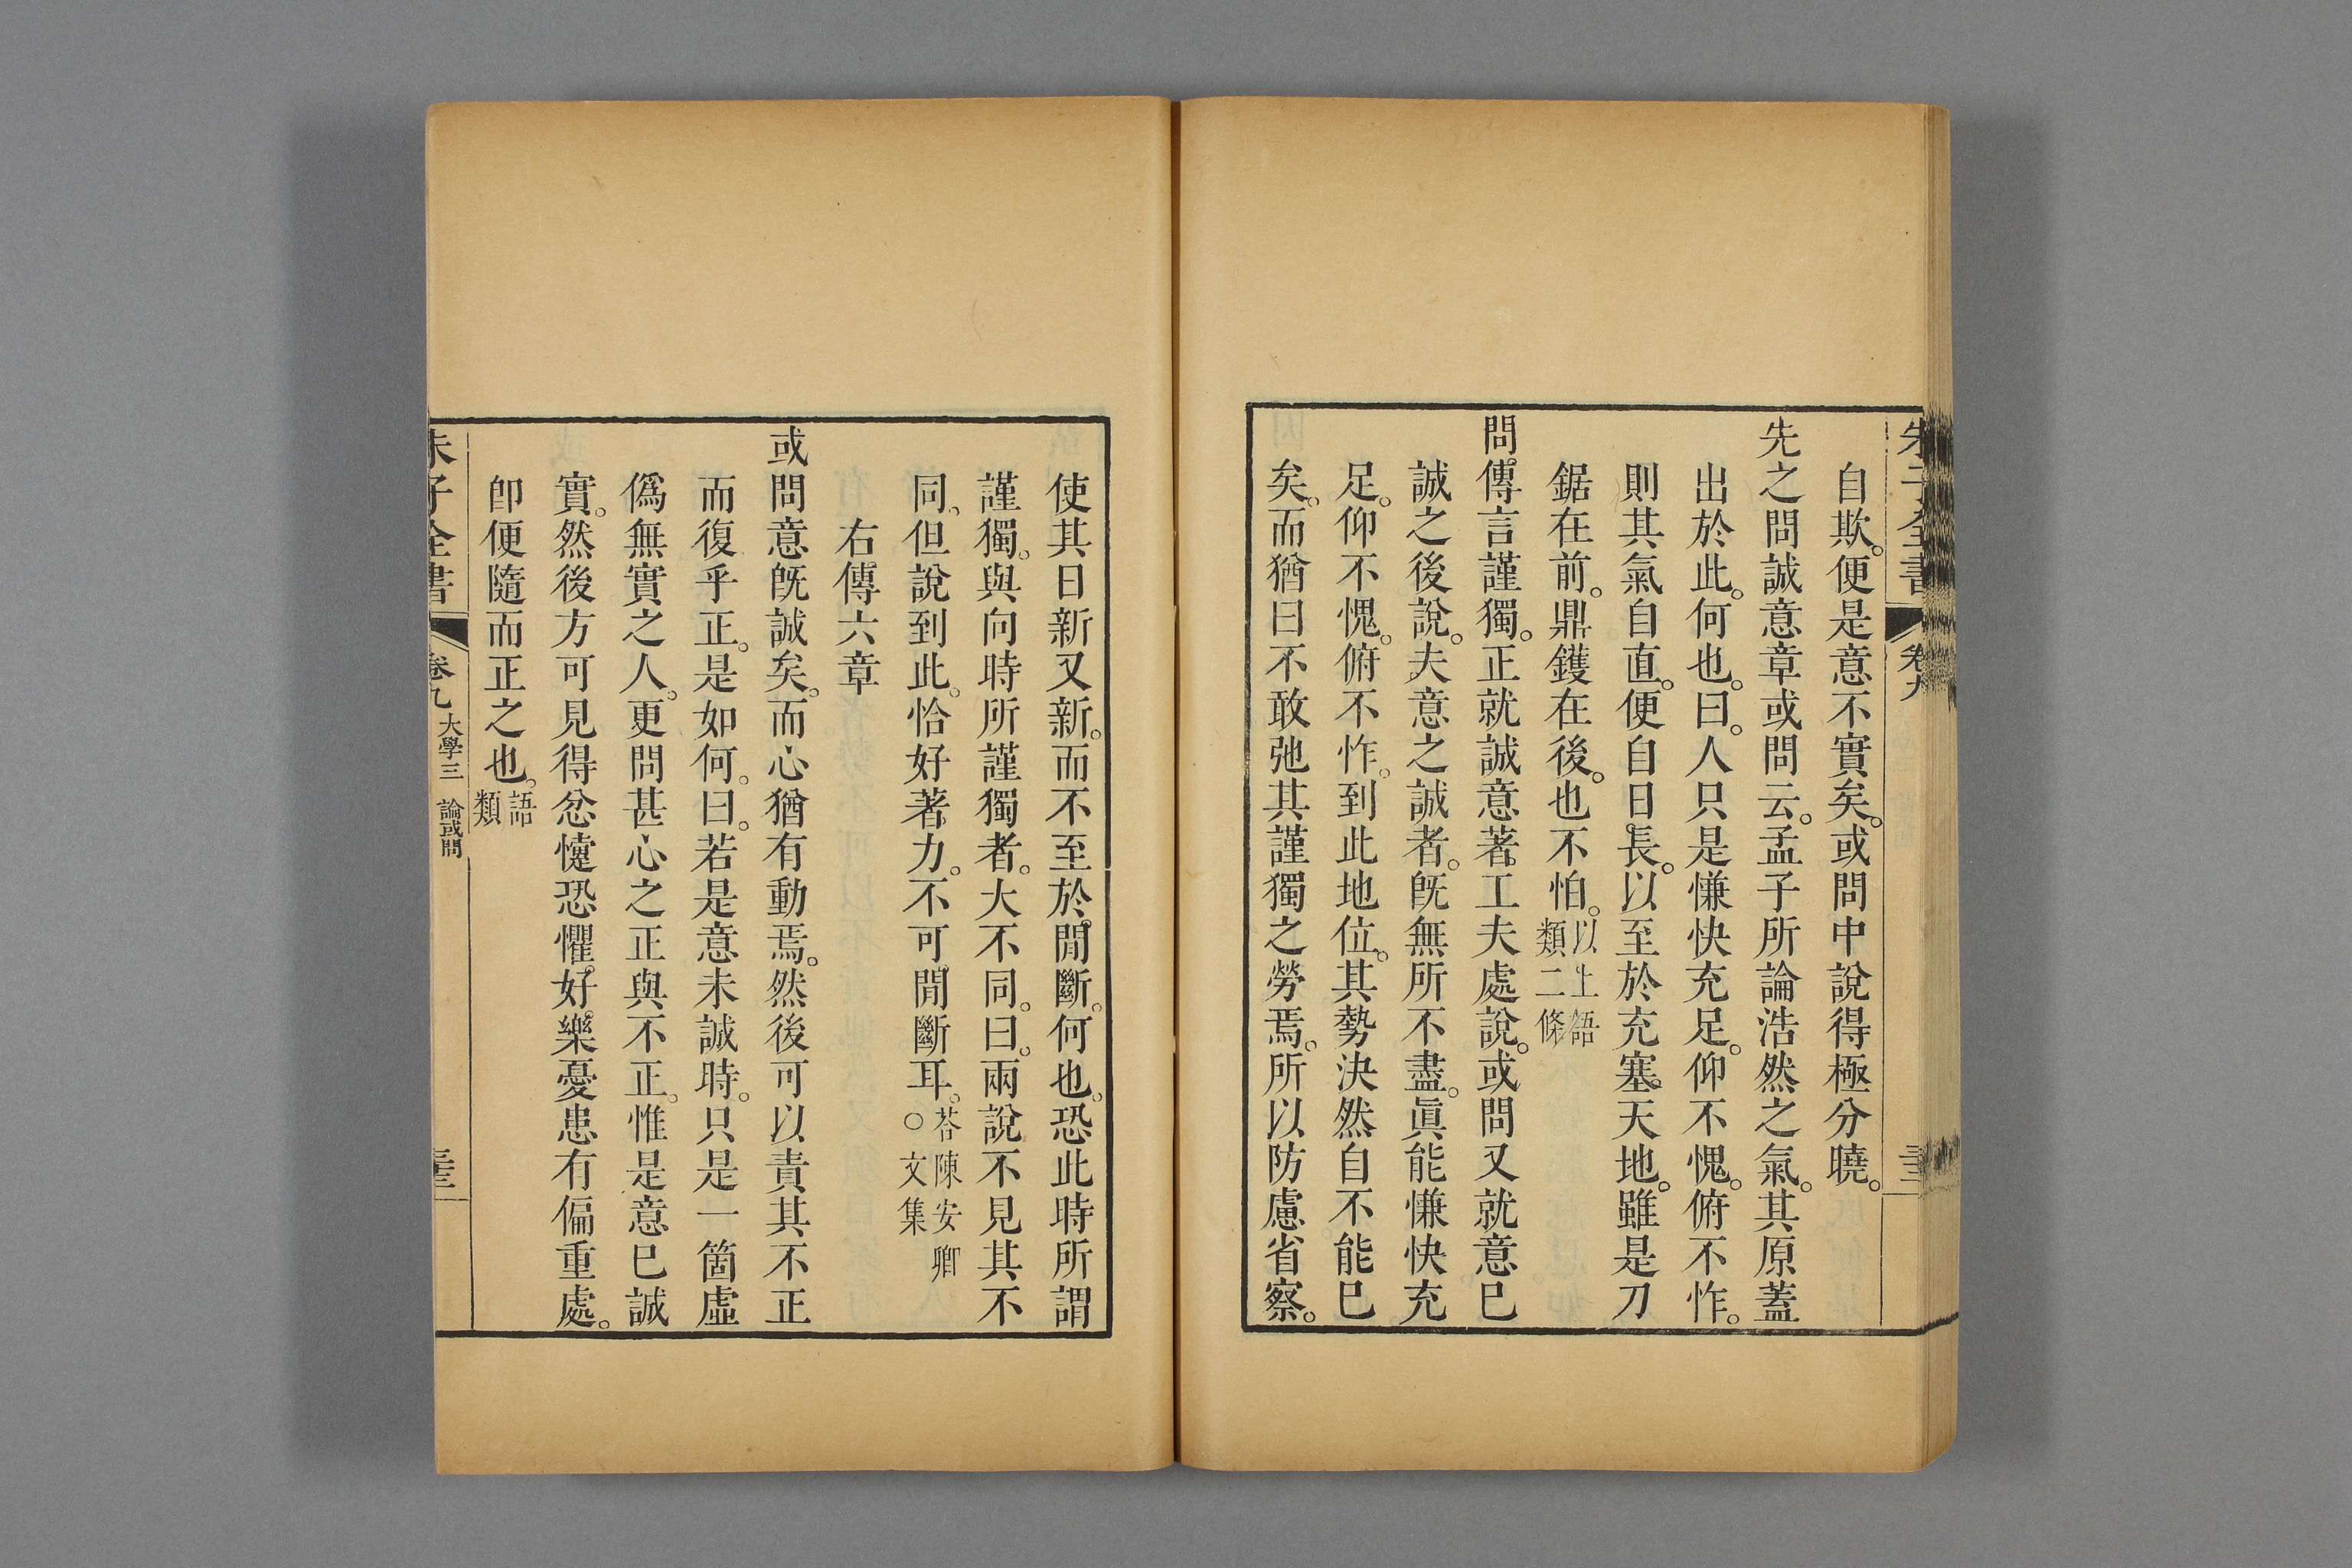 朱子全書 卷九
自欺。便是意不實矣。或問中說得極分曉。
先之問誠意章或問云。孟子所論浩然之氣。其原蓋
出於此。何也。曰。人只是慊快充足。仰不愧。俯不怍。
則其氣自直。便自日長。以至於充塞天地。雖是刀
鋸在前。鼎鑊在後。也不怕。以上語類二條
問傳言謹獨。正就誠意著工夫處說。或問又就意已
誠之後說。夫意之誠者。旣無所不盡。眞能慊快充
足。仰不愧。俯不怍。到此地位。其勢決然自不能已
矣。而猶曰不敢弛其謹獨之勞焉。所以防慮省察。
使其日新又新。而不至於閒斷。何也。恐此時所謂
謹獨。與向時所謹獨者。大不同。曰。兩說不見其不
同。但說到此。恰好著力。不可閒斷耳。答陳安卿○文集
右傳六章
或問意旣誠矣。而心猶有動焉。然後可以責其不正
而復乎正。是如何。曰。若是意未誠時。只是一箇虛
僞無實之人。更問甚心之正與不正。惟是意已誠
實。然後方可見得忿懥恐懼。好樂憂患有偏重處。
卽便隨而正之也。語類
朱子全書 卷九 大學三 論或問